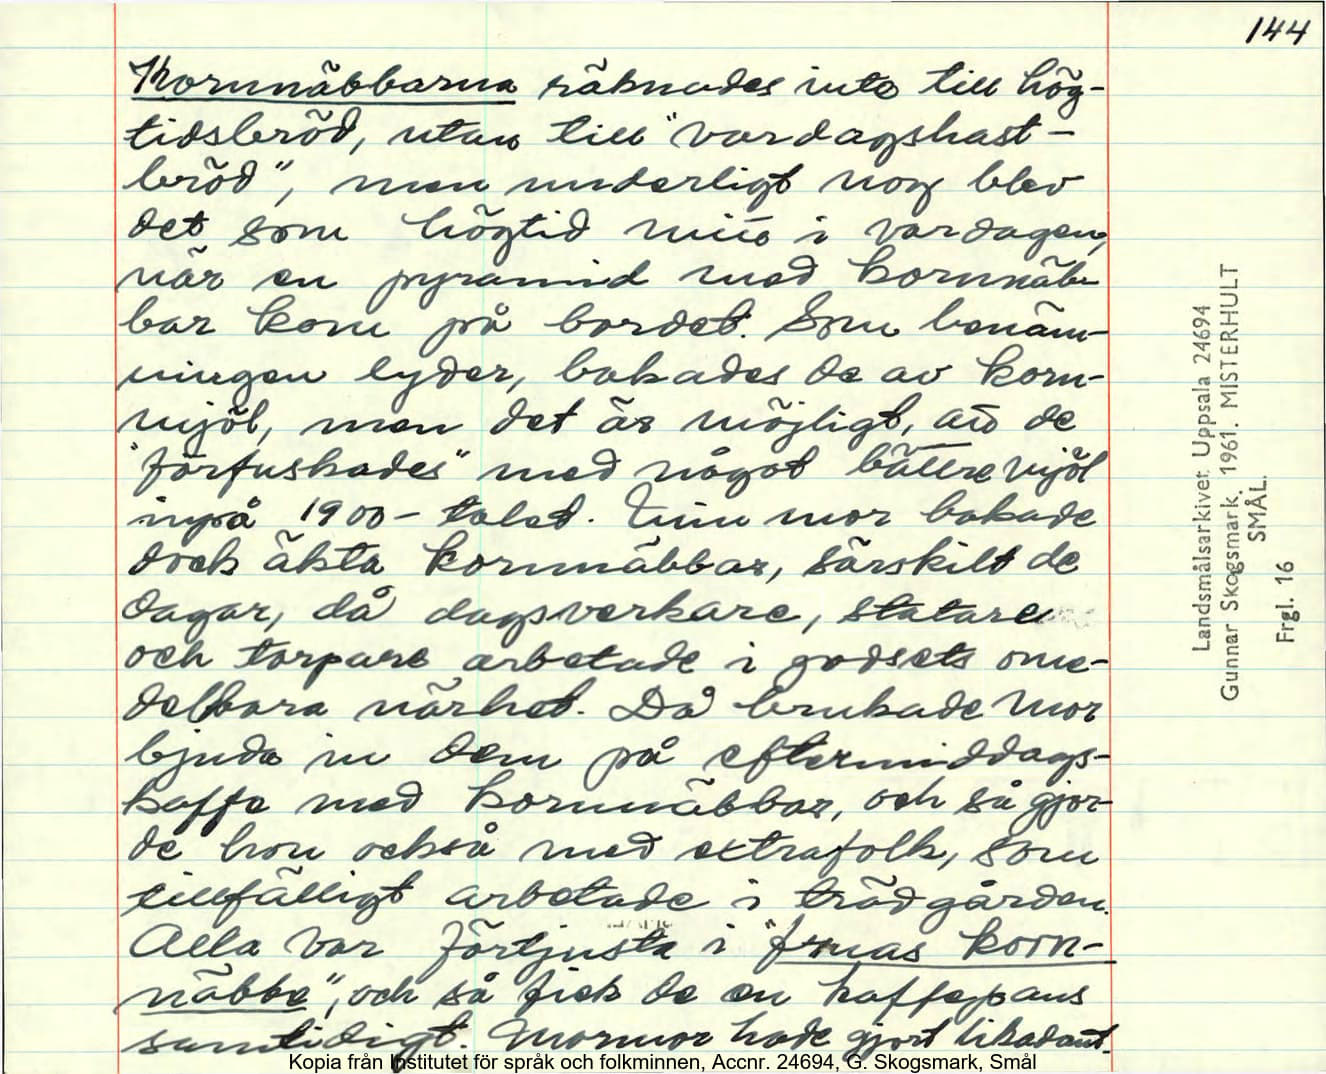 144
Kornnäbbarna räknades inte till hög-
tidsbröd, utan till "vardagshast-
bröd", men underligt nog blev
det som högtid mitt i vardagen,
när en pyramid med kornnäb-
bar kom på bordet. Som benäm-
ningen lyder, bakades de av korn-
mjöl, men det är möjligt, att de
"förfuskades" med något bättre mjöl
inpå 1900-talet. Min mor bakade
dock äkta kornnäbbar, särskilt de
dagar, då dagsverkare, statare
och torpare arbetade i godsets ome-
delbara närhet. Då brukade mor
bjuda in dem på eftermiddags-
kaffe med kornnäbbar, och så gjor-
de hon också med extrafolk, som
tillfälligt arbetade i trädgården.
Alla var förtjusta i "fruas korn-
näbbe", och så fick de en kaffepaus
samtidigt. Mormor hade gjort likadant.
Landsmålsarkivet Uppsala 24694
Gunnar Skogsmark. 1961. MISTERHULT
SMÅL.
Frgl. 16
Kopia från Institutet för språk och folkminnen, Accnr. 24694, G. Skogsmark, Smål